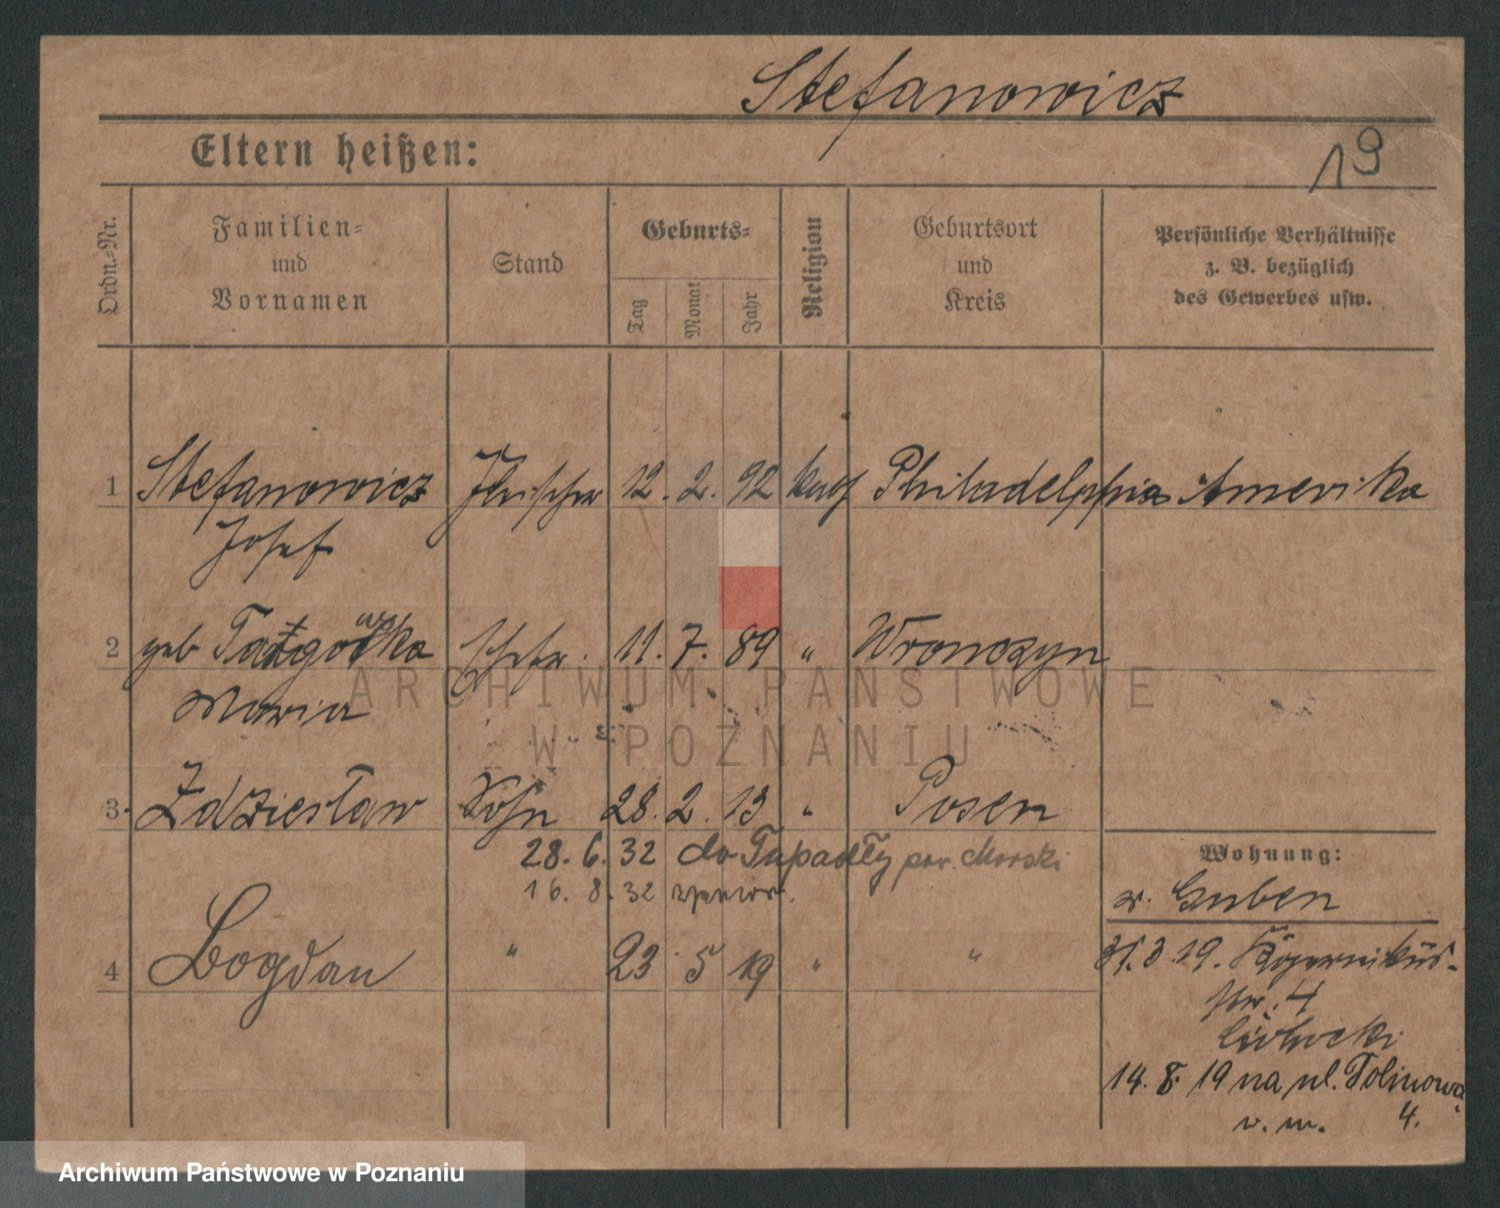 Stefanowicz
19
Eltern heißen:
Ordn.-Nr.
Familien- und Vornamen
Stand
Geburts-
Tag
Monat
Jahr
Religion
Geburtsort und Kreis
Persönliche Verhältnisse z. B. bezüglich des Gewerbes usw.
1 Stefanowicz Fleischer 12. 2. 92 kath Philadelphia Amerika
Josef
2 geb Ehefr. 11. 7. 89 " Wronczyn
Maria
ARCHIWUM PAŃSTWOWE
W POZNANIU
3. Zdziesław Sohn 28. 2. 13 " Posen
28. 6. 32 do Tupadły pow. Morski
16. 8. 32
4 Bogdan " 23 5 19 " "
Wohnung:
v. Guben
31. 3. 19. Kopernikus-
str. 4
14. 8. 19 na ul.
w. m. 4.
Archiwum Państwowe w Poznaniu